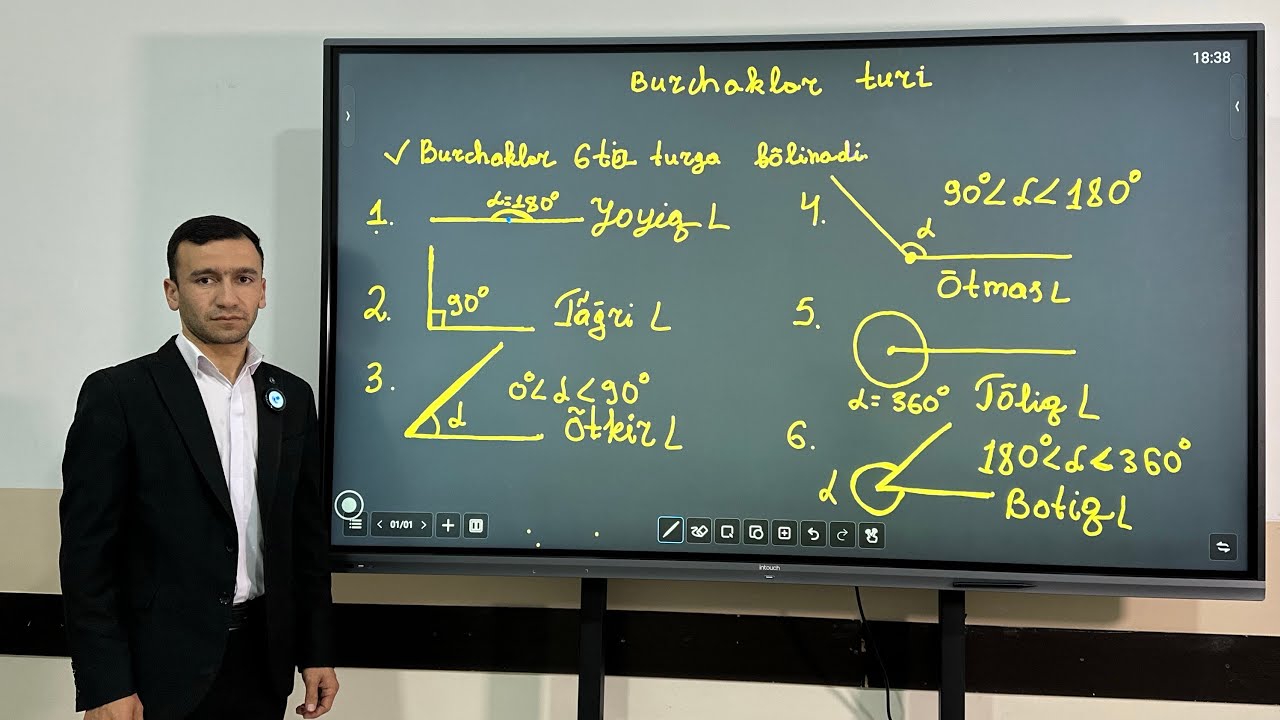 18:38
Burchaklar turi
✓ Burchaklar 6ta turga bōlinadi.
1. α=180° Yoyiq L
2. 90° Tōğri L
3. α 0°<α<90°
Õtkir L
4. α 90°<α<180°
Ōtmas L
5.
α=360° Tōliq L
6. α 180°<α<360°
Botiq L
01/01
intouch